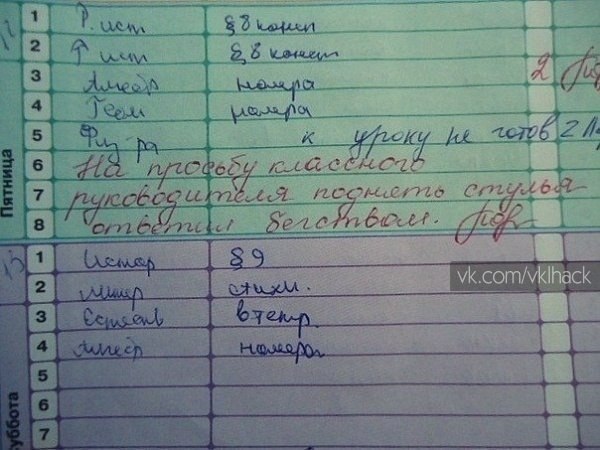 12
Пятница
1 Р. ист § 8 консп
2 Р ист § 8 консп
3 Алгебр номера 2
4 Геом номера
5 Физ-ра к уроку не готов 2
6 На просьбу классного
7 руководителя поднять стулья
8 ответил бегством.
13
Суббота
1 Истор § 9
vk.com/vklhack
2 Литер стихи.
3 Естеств в тетр.
4 Алгебр номера
5
6
7